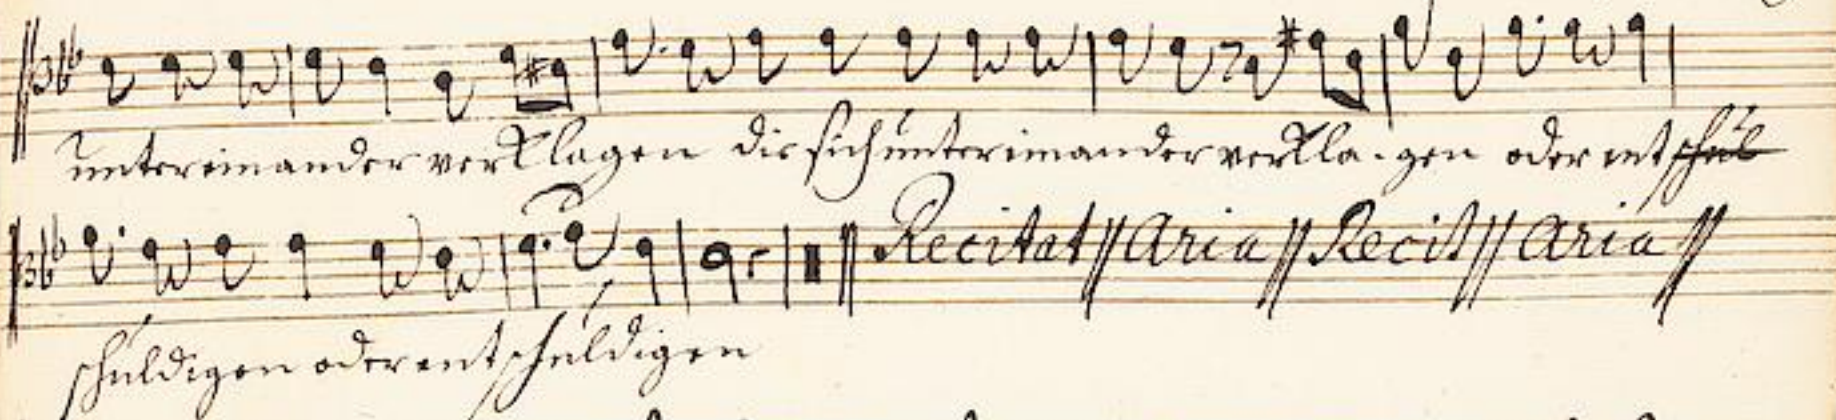 untereinander verklagen die sich untereinander verkla- gen oder ent schul
Recitat Aria Recit Aria
schuldigen oder entschuldigen